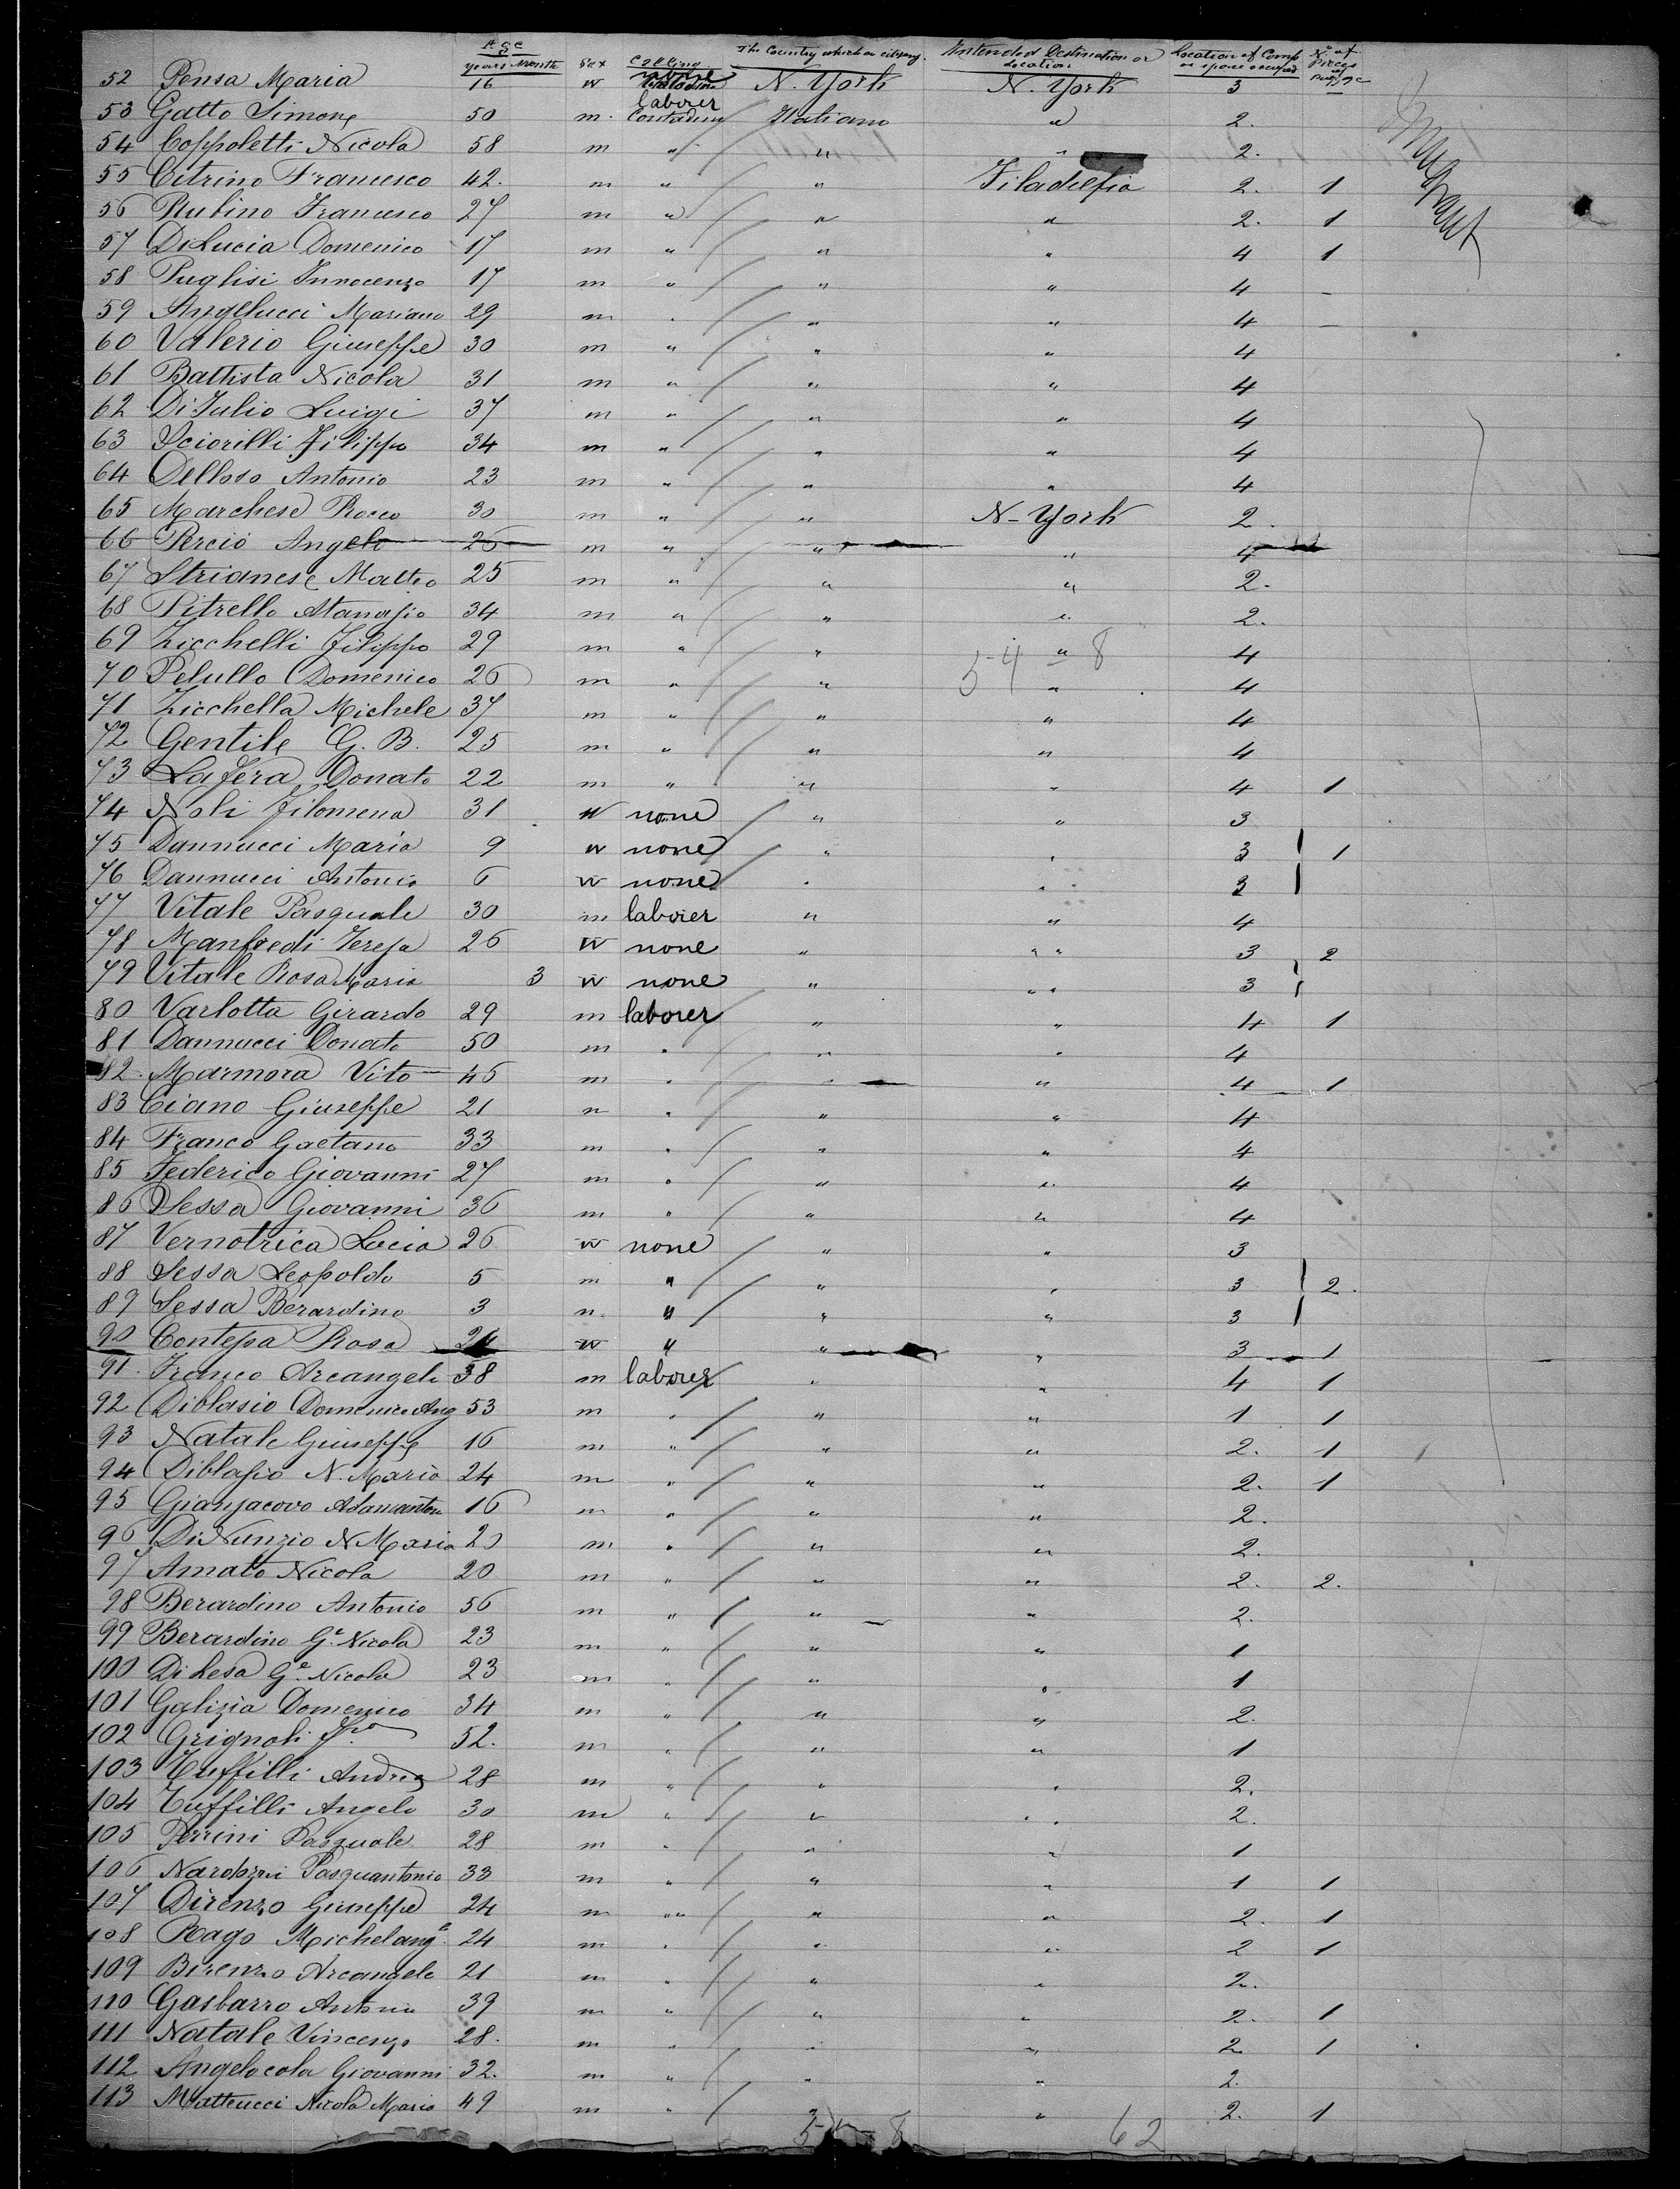 Age years Month Sex Calling The Country which a citizen Intended Destination or Location Location of Comp or space occupied No of Pieces of Baggage
52 Pensa Maria 16 w none N. York N. York 3 —
53 Gatto Simone 50 m. laborer Contadino Italiano " 2.
54 Coppoletti Nicola 58 m " " " 2.
55 Citrino Francesco 42. m " " Filadelfia 2. 1
56 Rubino Francesco 27 m " " " 2. 1
57 DiLucia Domenico 17 m " " " 4 1
58 Puglisi Innocenzo 17 m " " " 4 —
59 Angelucci Mariano 29 m " " " 4 —
60 Valerio Giuseppe 30 m " " " 4
61 Battista Nicola 31 m " " " 4
62 DiJulio Luigi 37 m " " " 4
63 Sciorilli Filippo 34 m " " " 4
64 Delloso Antonio 23 m " " " 4
65 Marchese Rocco 30 m " " N-York 2.
66 Percio Angelo 25 m " " " 4
67 Strianese Matteo 25 m " " " 2.
68 Pitrello Atanasio 34 m " " " 2.
69 Zicchelli Filippo 29 m " " " 4
5-4 8
70 Petullo Domenico 26 m " " " 4
71 Zicchella Michele 37 m " " " 4
72 Gentile G. B. 25 m " " " 4
73 Lafera Donato 22 m " " " 4 1
74 Noli Filomena 31 w none " " 3
75 Dannucci Maria 9 w none " " 3 1
76 Dannucci Antonia 6 w none " " 3
77 Vitale Pasquale 30 m laborer " " 4
78 Manfredi Teresa 26 w none " " " 3 2
79 Vitale Rosa Maria 3 w none " " " 3
80 Varlotta Girardo 29 m laborer " " 4 1
81 Dannucci Donato 50 m " " " 4
82 Marmora Vito 45 m " " " 4 1
83 Ciano Giuseppe 21 m " " " 4
84 Franco Gaetano 33 m " " " 4
85 Federico Giovanni 27 m " " " 4
86 Sessa Giovanni 36 m " " " 4
87 Vernotrica Lucia 26 w none " " 3
88 Sessa Leopoldo 5 m " " " 3 2.
89 Sessa Berardino 3 m. " " " 3
90 Contessa Rosa w " " " 3 1
91 Franco Arcangelo 38 m laborer " " 4 1
92 Diblasio Domenico Ang 53 m " " " 1 1
93 Natale Giuseppe 16 m " " " 2. 1
94 Diblasio N. Maria 24 m " " " 2. 1
95 Gianjacovo Adamanton 16 m " " " 2.
96 DiNunzio N Maria m " " " 2.
97 Amato Nicola 20 m " " " 2. 2.
98 Berardino Antonio 56 m " " " 2.
99 Berardino Ge. Nicola 23 m " " " 1
100 Di Lesa Ge. Nicola 23 m " " " 1
101 Galizia Domenico 34 m " " " 2.
102 Grignoli Fco 52. m " " " 1
103 Tuffilli Andrea 28 m " " " 2.
104 Tuffilli Angelo 30 m " " " 2.
105 Perrini Pasquale 28 m " " " 1
106 Pasquantonio 33 m " " " 1 1
107 Direnzo Giuseppe 24 m " " " 2. 1
108 Rago Michelang.o 24 m " " " 2 1
109 Birenzo Arcangelo 21 m " " " 2.
110 Gasbarro Antonio 39 m " " " 2. 1
111 Natale Vincenzo 28. m " " " 2 1
112 Angelocola Giovanni 32. m " " " 2.
113 Matteucci Nicola Maria 49 m " " " 2. 1
62